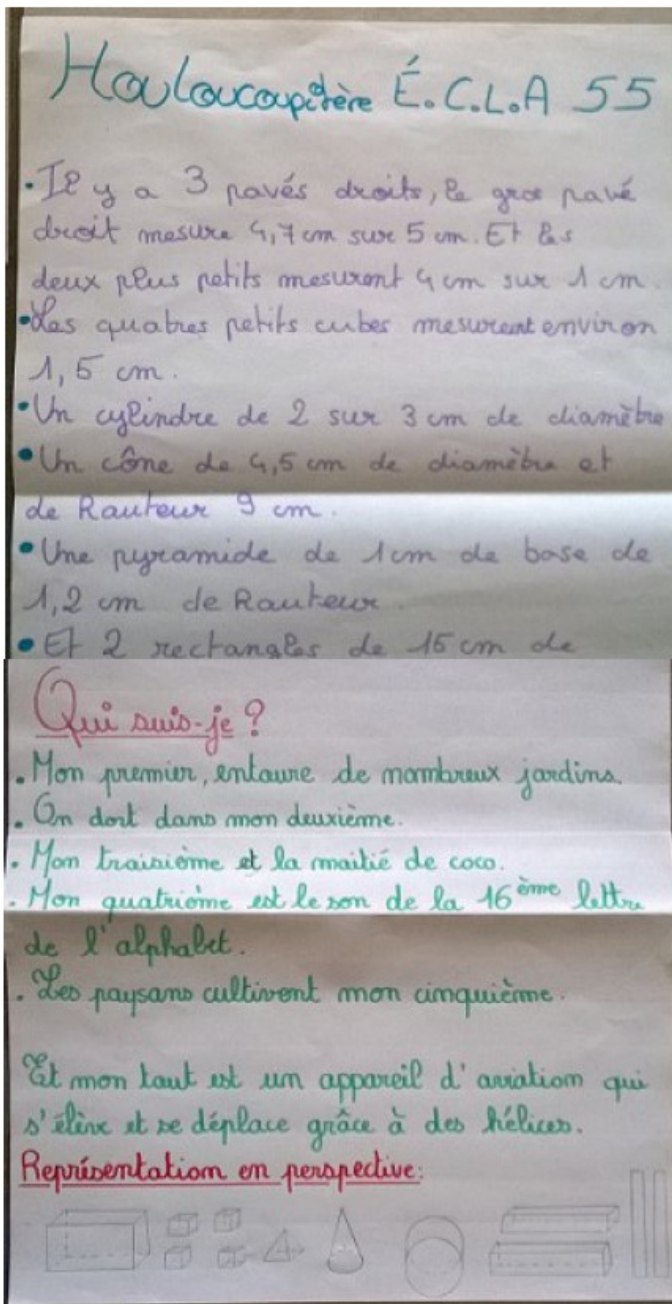 Houloucoupitère É.C.L.A 55
• Il y a 3 pavés droits, le gros pavé
droit mesure 4,7 cm sur 5 cm. Et les
deux plus petits mesurent 4 cm sur 1 cm.
• Les quatres petits cubes mesurent environ
1,5 cm.
• Un cylindre de 2 sur 3 cm de diamètre
• Un cône de 4,5 cm de diamètre et
de hauteur 9 cm.
• Une pyramide de 1cm de base de
1,2 cm de hauteur.
• Et 2 rectangles de 15 cm de
Qui suis-je ?
. Mon premier, entoure de nombreux jardins.
. On dort dans mon deuxième.
. Mon troisième et la moitié de coco.
. Mon quatrième est le son de la 16ème lettre
de l'alphabet.
. Les paysans cultivent mon cinquième.
Et mon tout est un appareil d'aviation qui
s'élève et se déplace grâce à des hélices.
Représentation en perspective: